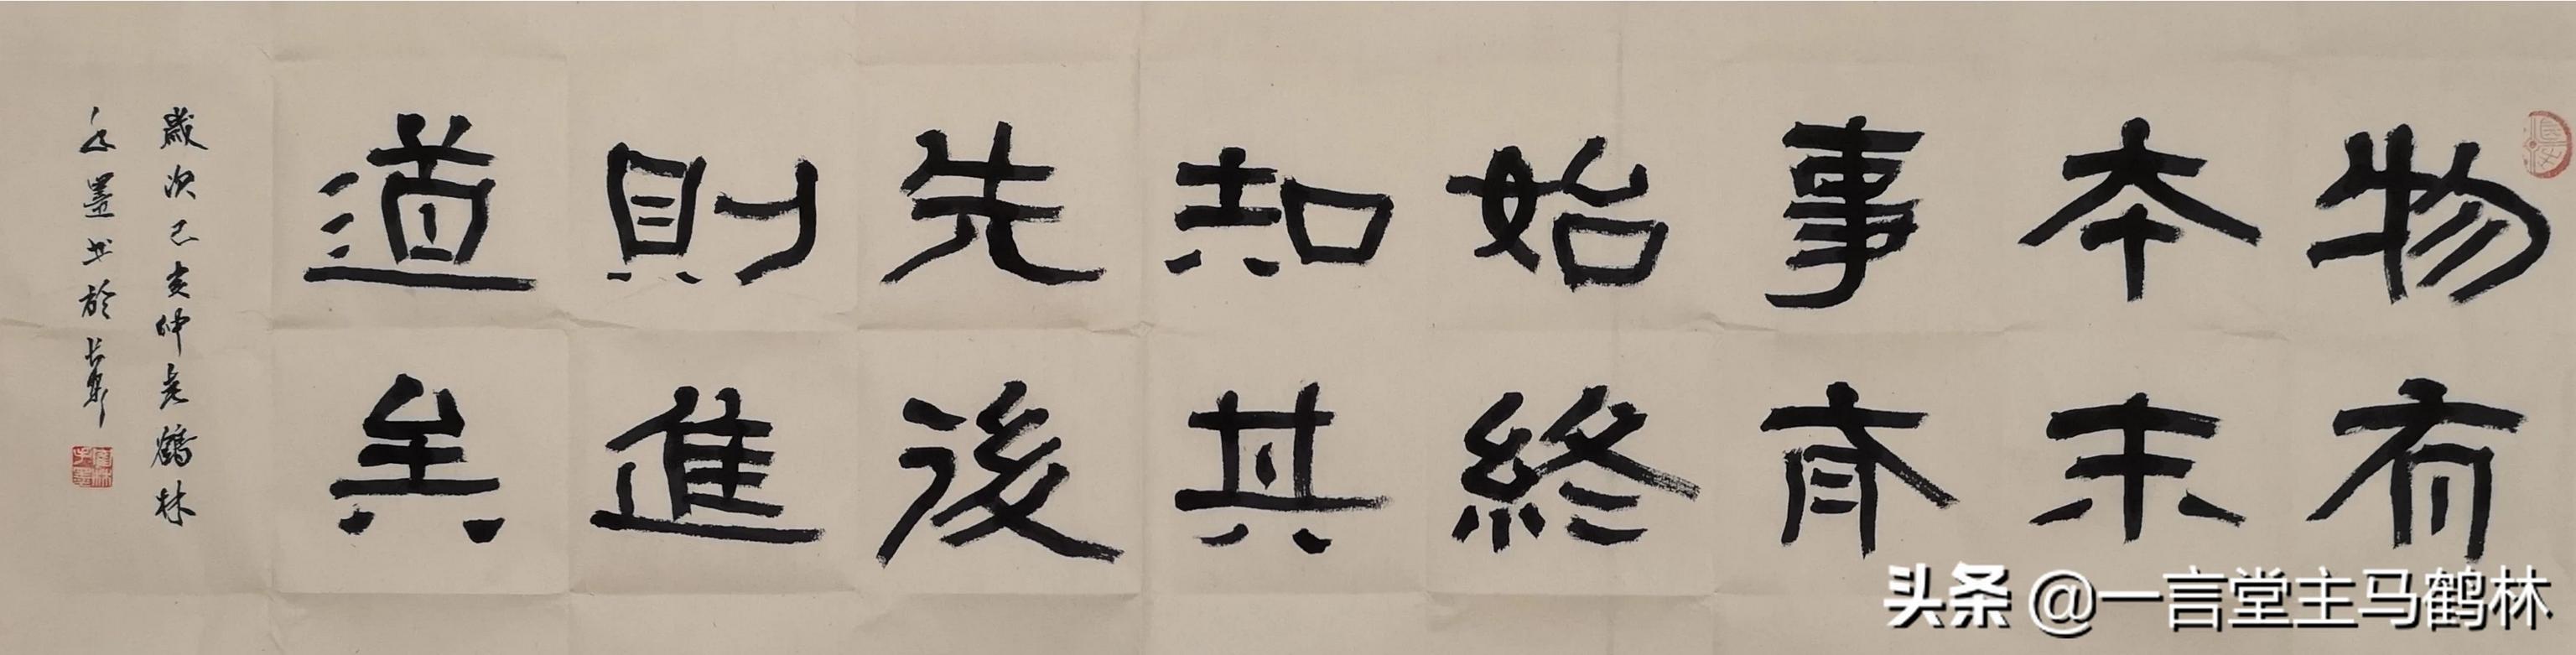 物有
本末
事有
始終
知其
先後
則進
道矣
歲次己亥仲春鶴林
墨書於長安
头条 @一言堂主马鹤林